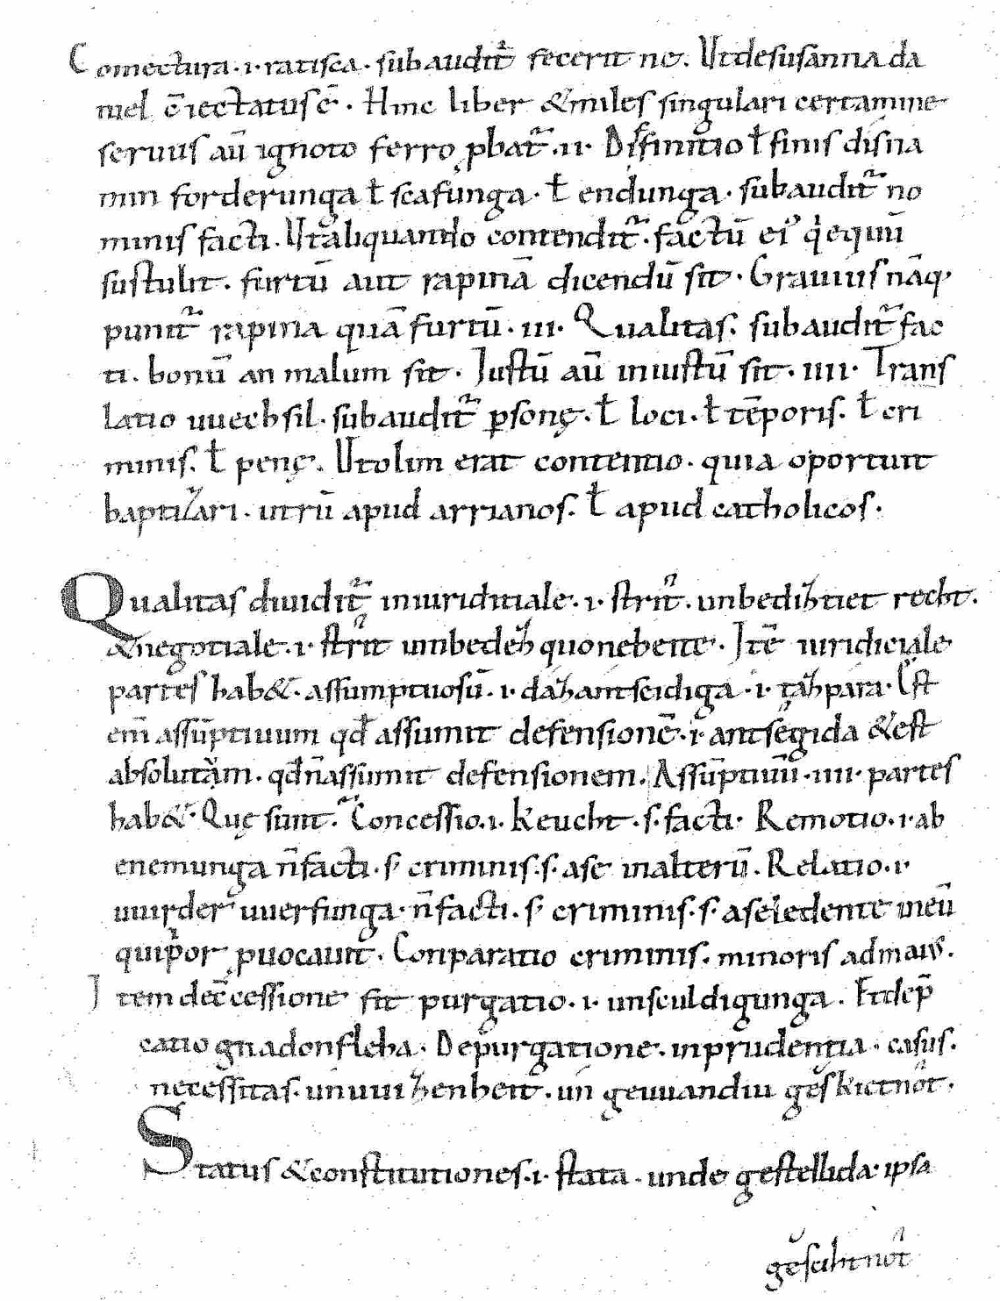 Comectura · i · ratisca · subauditᷓ fecerit ne. Utdesusanna da
niel c̄iectatusē · Hinc liber &miles singulari certamine
seruus aū ignoto ferro ꝓbatᷓ · ii · Diffinitio ꝉ finis disna
min forderunga ꝉ scafunga · ꝉ endunga · subauditᷓ no
minis facti. Utꝉ aliquando contenditᷓ · factū ei᾽ q̇ equū
sustulit. furtū aut rapinā dicendū sit · Grauiusnāq·
punitᷓ rapina quā furtū · iii · Qualitas · subauditᷓ fac
ti · bonū an malum sit · Justū aū iniustū sit · iiii · Trans
latio uuechsil · subauditᷓ ꝑsonę · ꝉ loci · ꝉ tēporis. ꝉ cri
minis. ꝉ penę. Utolim erat contentio · quia oportuit
baptizari · utrū apud arrianos. ꝉ apud catholicos ·
Qualitas diuiditᷓ iniuriditiale · i · strit · unbedihtiet recht.
&negotiale · i · strit umbedeh quoneheite · Itē iuridiciale
partes hab& · assumptuosū · i · dahantseidiga · i · tahpara · Est
em̄ assūptiuum qđ assumit defensionē · i antsegida &est
absolutam · qđn̄assumit defensionem. Assūptiuū · iiii · partes
hab& · Quę suntᷓ Concessio · i · keucht · s · facti · Remotio · i · ab
enemunga n̄facti · s criminis · s · ase inalterū. Relatio · i ·
uuider uuerfunga · n̄facti · s criminis · s · aseledente meū
quip̄or ꝓuocauit · Conparatio criminis · minoris admaius ·
Item dec̄cessione fit purgatio · i · unsculdigunga. Etdep̄
catio gnadonfleha · Depurgatione · inprudentia · casus ·
necessitas · unuuizenheit · un geuuandiu geskietnot ·
Status &constitutiones · i · stata · unde gestellida · ipsa
gescihtnot